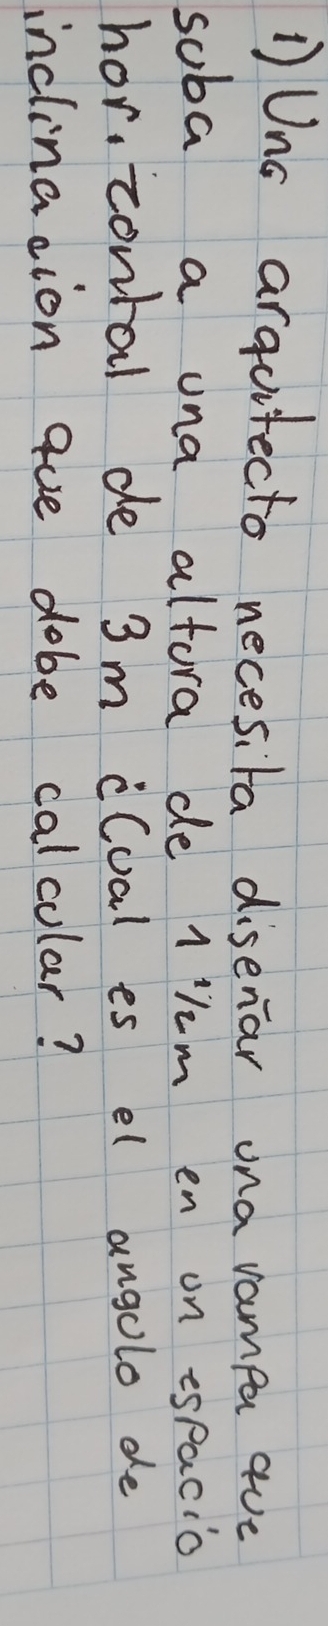 1) Una arquitecto necesita diseñar una rampa que
suba a una altura de 1 1/2 m en un espacio
horizontal de 3 m ¿Cual es el angulo de
inclinacion que debe calcular?